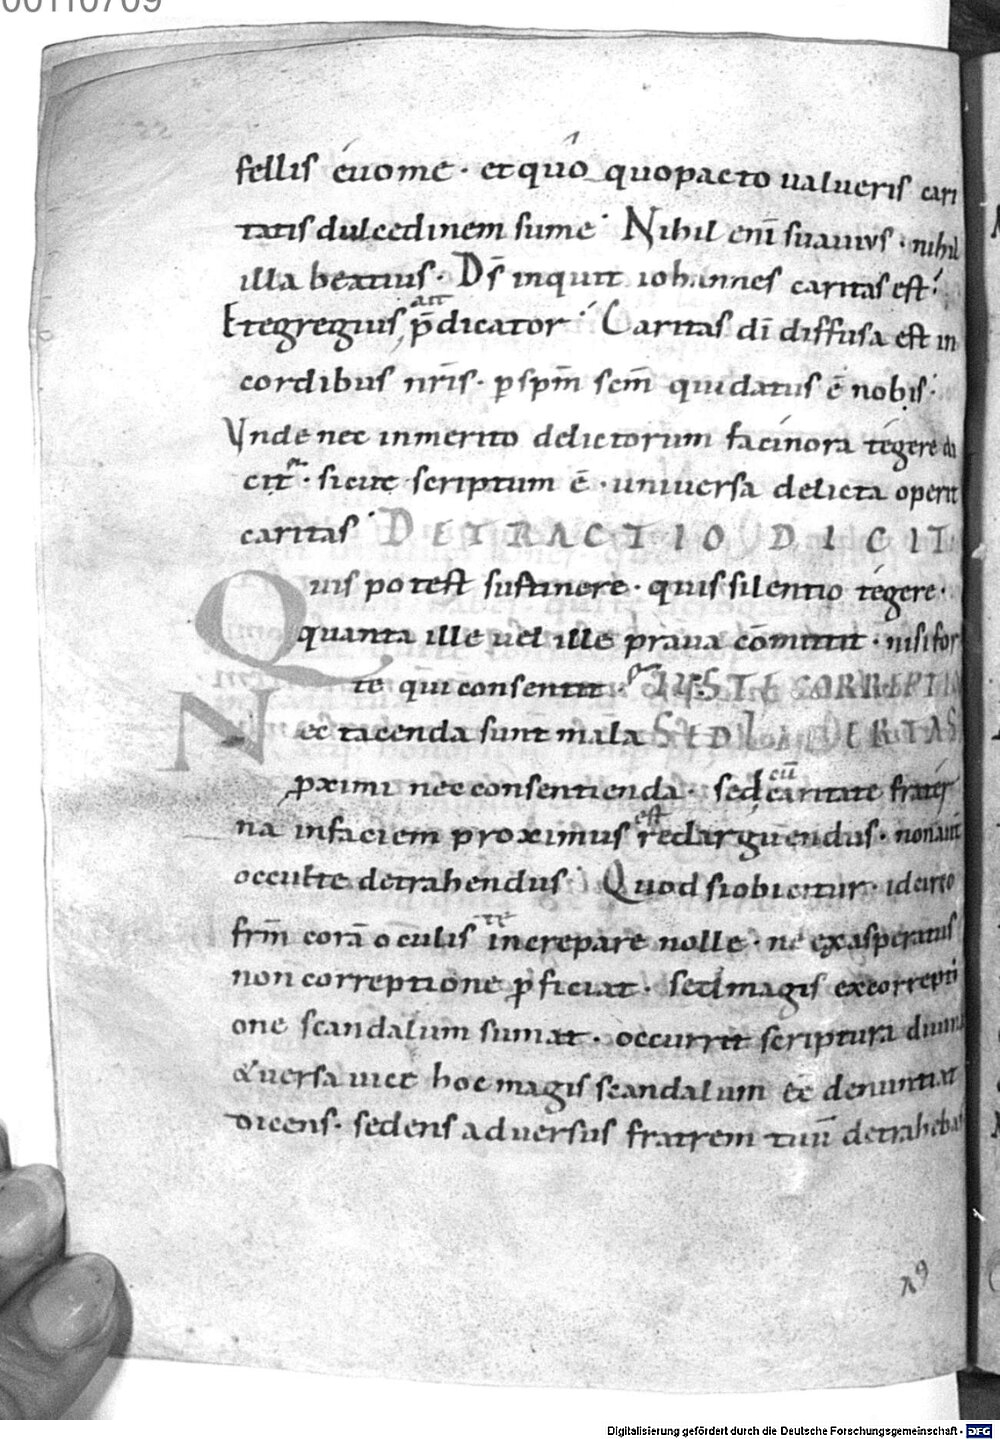 00110709
fellis éuome · et quo quopacto ualueris cari
tatis dulcedinem sume · Nihil eni̅ suauius · nihil
illa beatius · Ds̅ inquit iohannes caritas est ·
Et egregius p̅dicator · Caritas di̅ diffusa est in
cordibus nr̅is · p spm̅ scm̅ qui datus e̅ nobis ·
Vnde nec inmerito delictorum facinora tégere
cit · sicut scriptum e̅ · uniuersa delicta operit
caritas · DETRACTIO DICIT
Quis potest sustinere · quis silentio tégere ·
quanta ille uel ille praua co̅mittit · nisi for
te qui consentit · IUSTE CORREPTIO
Nec tacenda sunt mala SED
pximi nec consentienda · sed cu̅ caritate frater
na in faciem proximus est redarguendus · non aut̅
occulte detrahendus · Quod si obicitur · idcirco
frm̅ cora̅ oculis te increpare nolle · ne exasperatus
non correptione pficiat · sed magis ex correpti
one scandalum sumat · occurrit scriptura diuina
& uersa uice hoc magis scandalum ee̅ denuntiat
dicens · sedens aduersus fratrem tuu̅ detrahebas
Digitalisierung gefördert durch die Deutsche Forschungsgemeinschaft - DFG